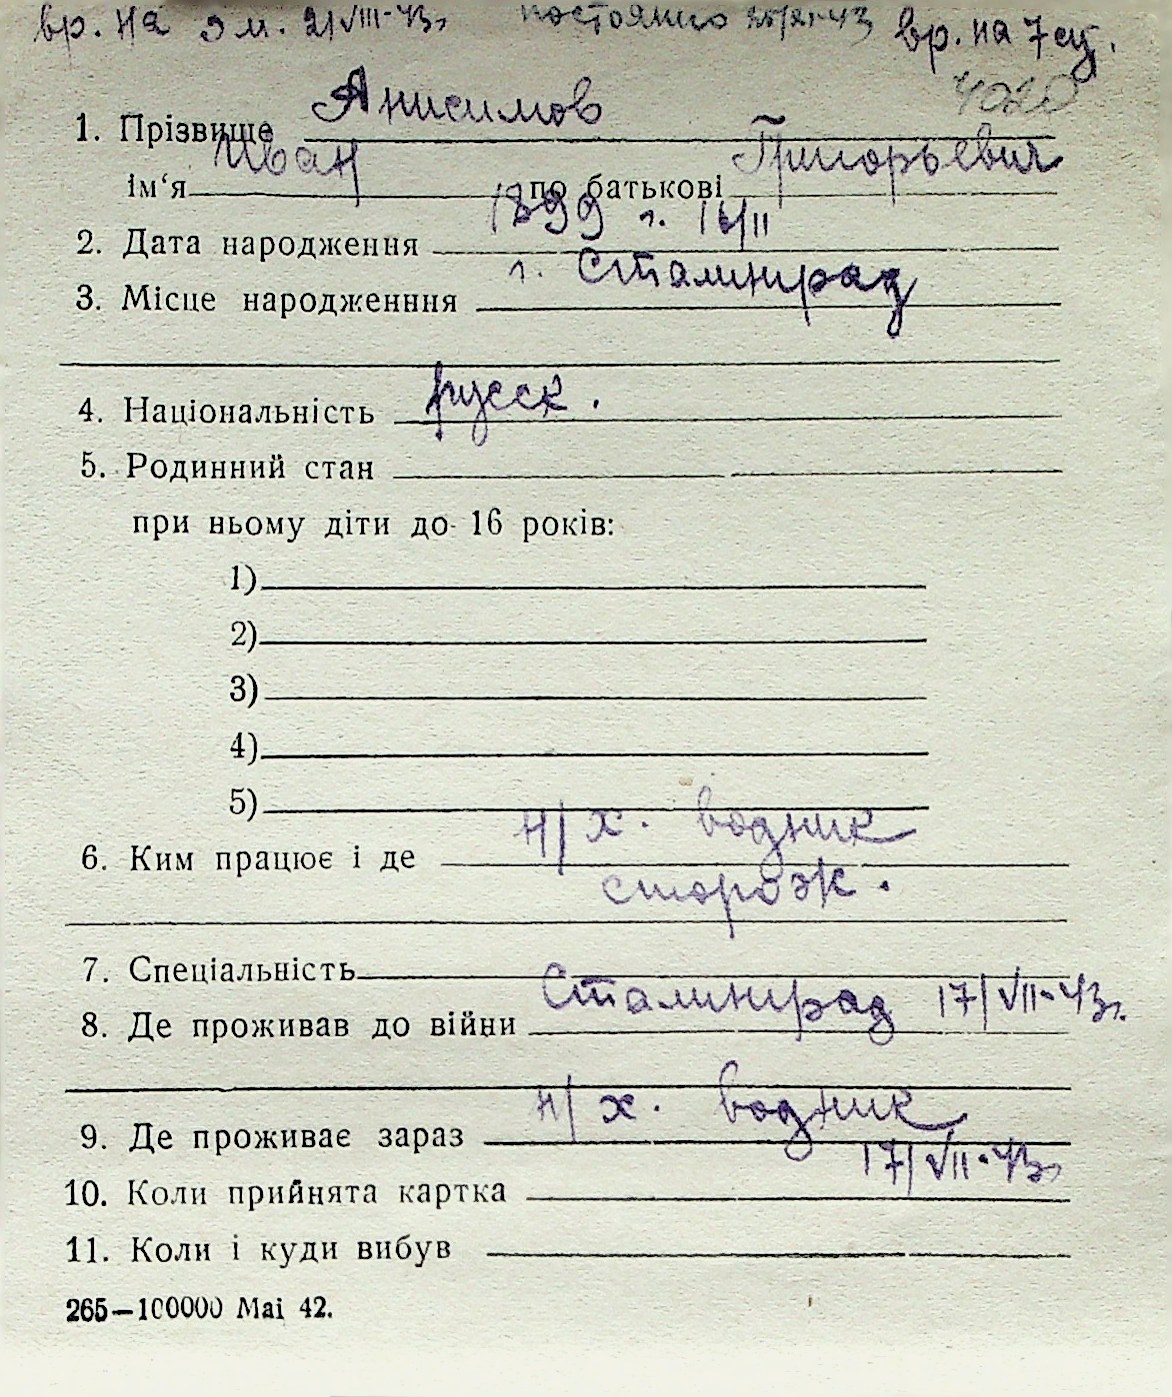 вр. на 3 м. 21/VIII-43г. постоянно 25/XI-43 вр. на 7 ец.
4020
1. Прізвище Анисимов
ім‘я Иван по батькові Григорьевич
2. Дата народження 1899 г. 16/II
3. Місце народженння г. Сталинград
4. Національність русск.
5. Родинний стан
при ньому діти до 16 років:
1)
2)
3)
4)
5)
6. Ким працює і де н/х. водник
сторож.
7. Спеціальність
8. Де проживав до війни Сталинград 17/VII-43г.
9. Де проживає зараз н/х. водник
10. Коли прийнята картка 17/VII-43г.
11. Коли і куди вибув
265—100000 Mai 42.